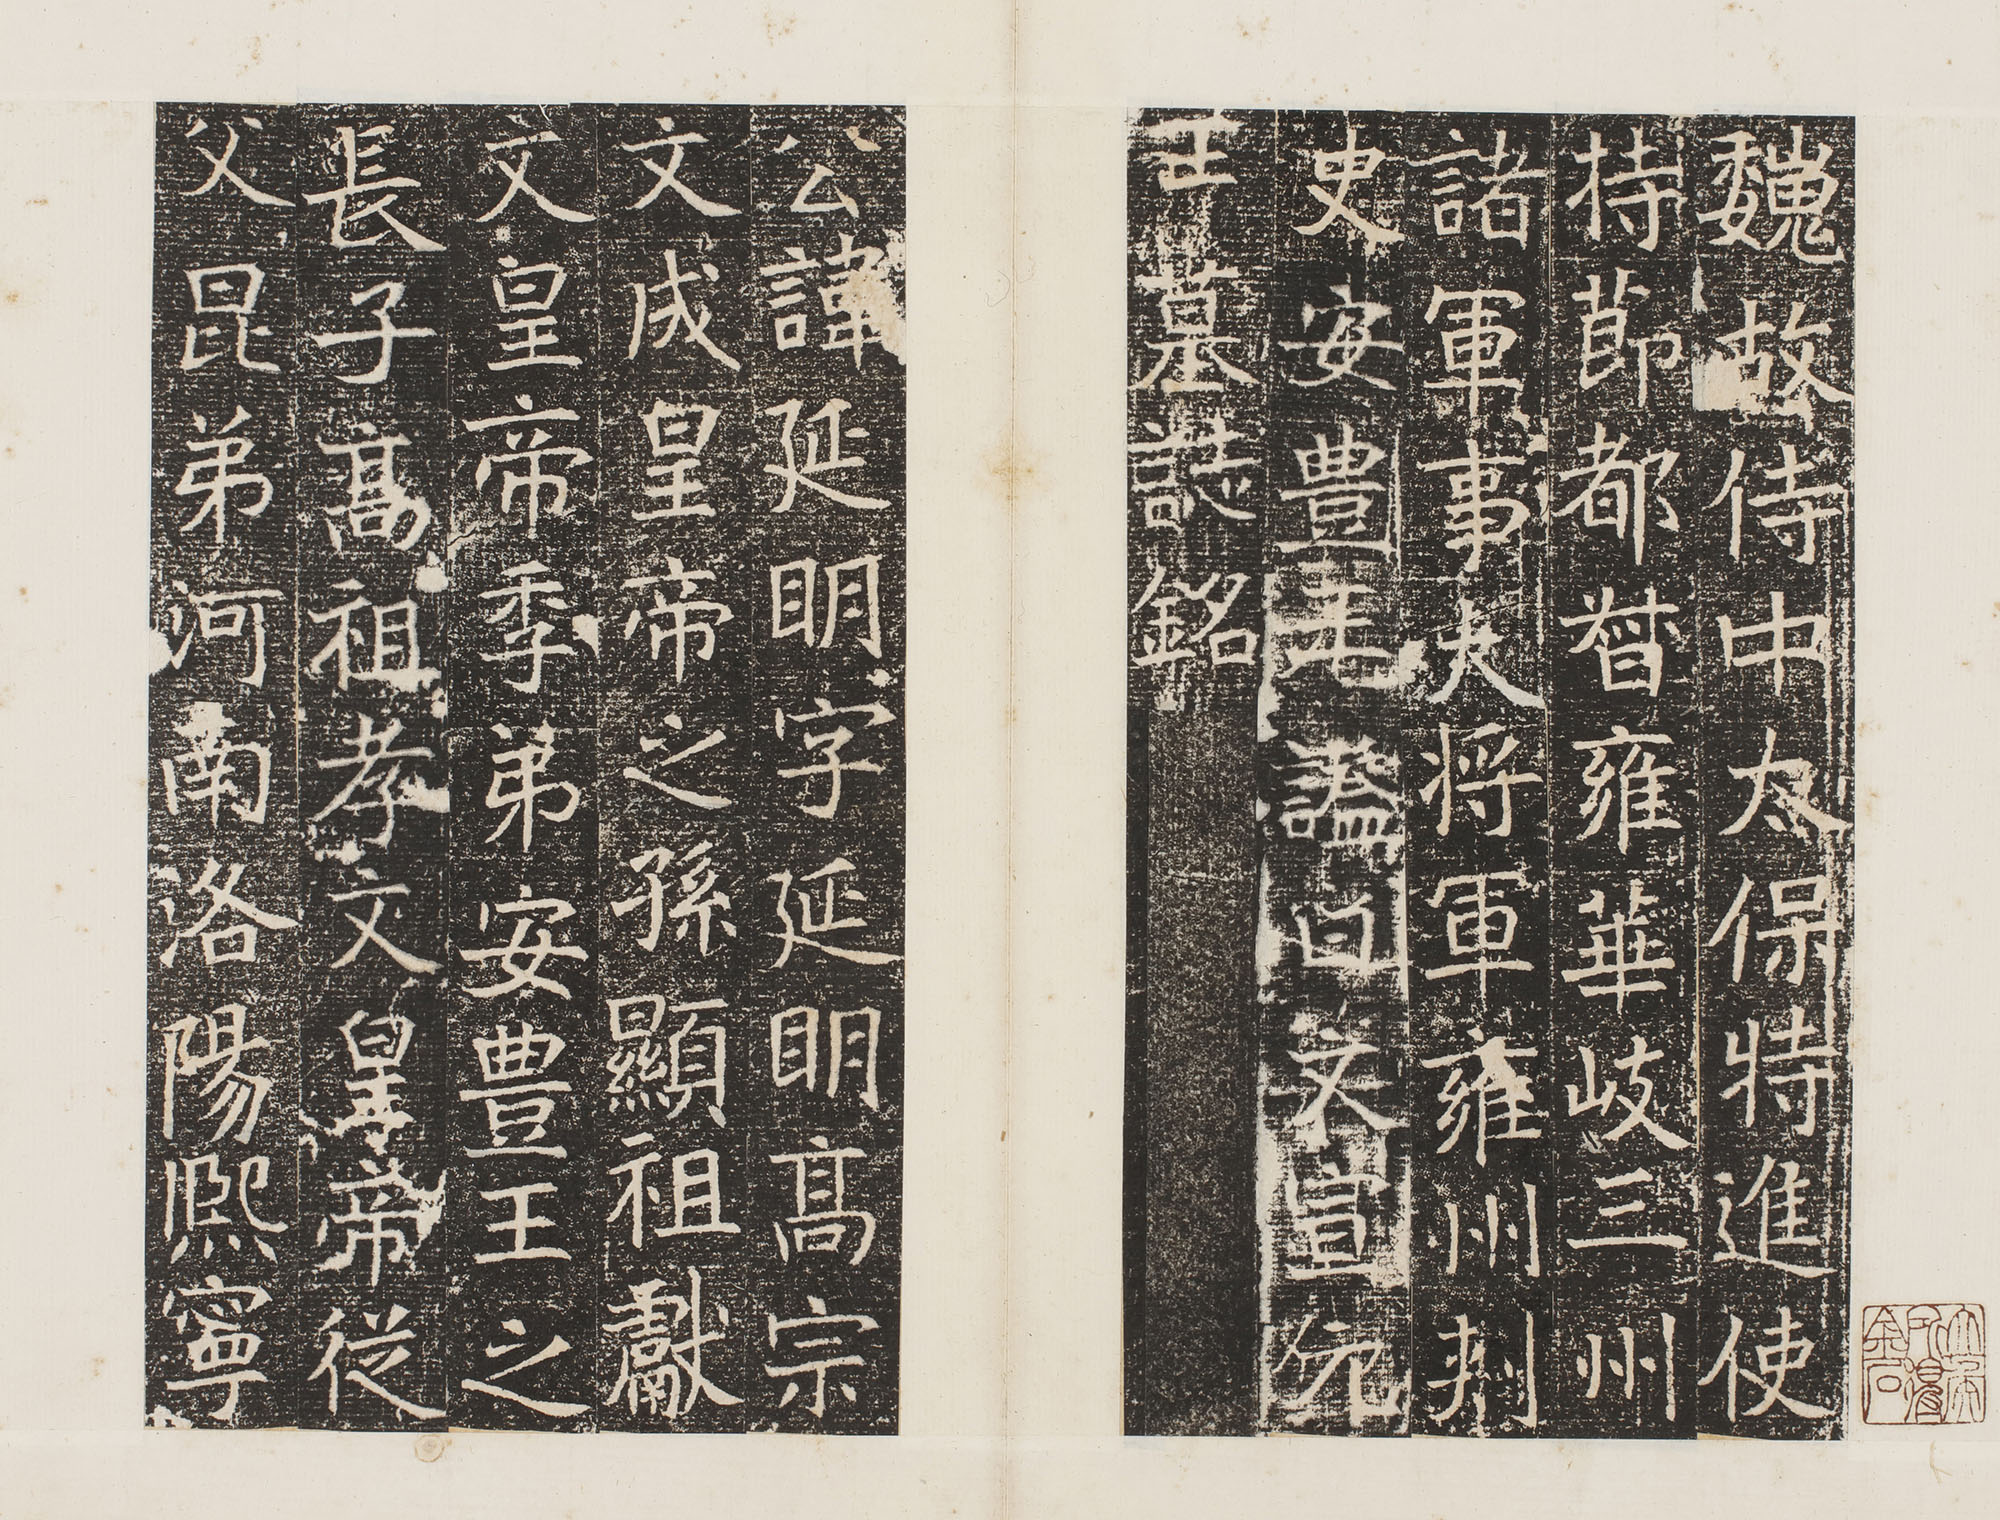 魏故侍中太保特進使
持節都督雍華岐三州
諸軍事大將軍雍州刺
史安豊王謚曰文宣元
王墓誌銘
公諱延明字延明高宗
文成皇帝之孫顯祖獻
文皇帝季弟安豊王之
長子高祖孝文皇帝從
父昆弟河南洛陽熙寧